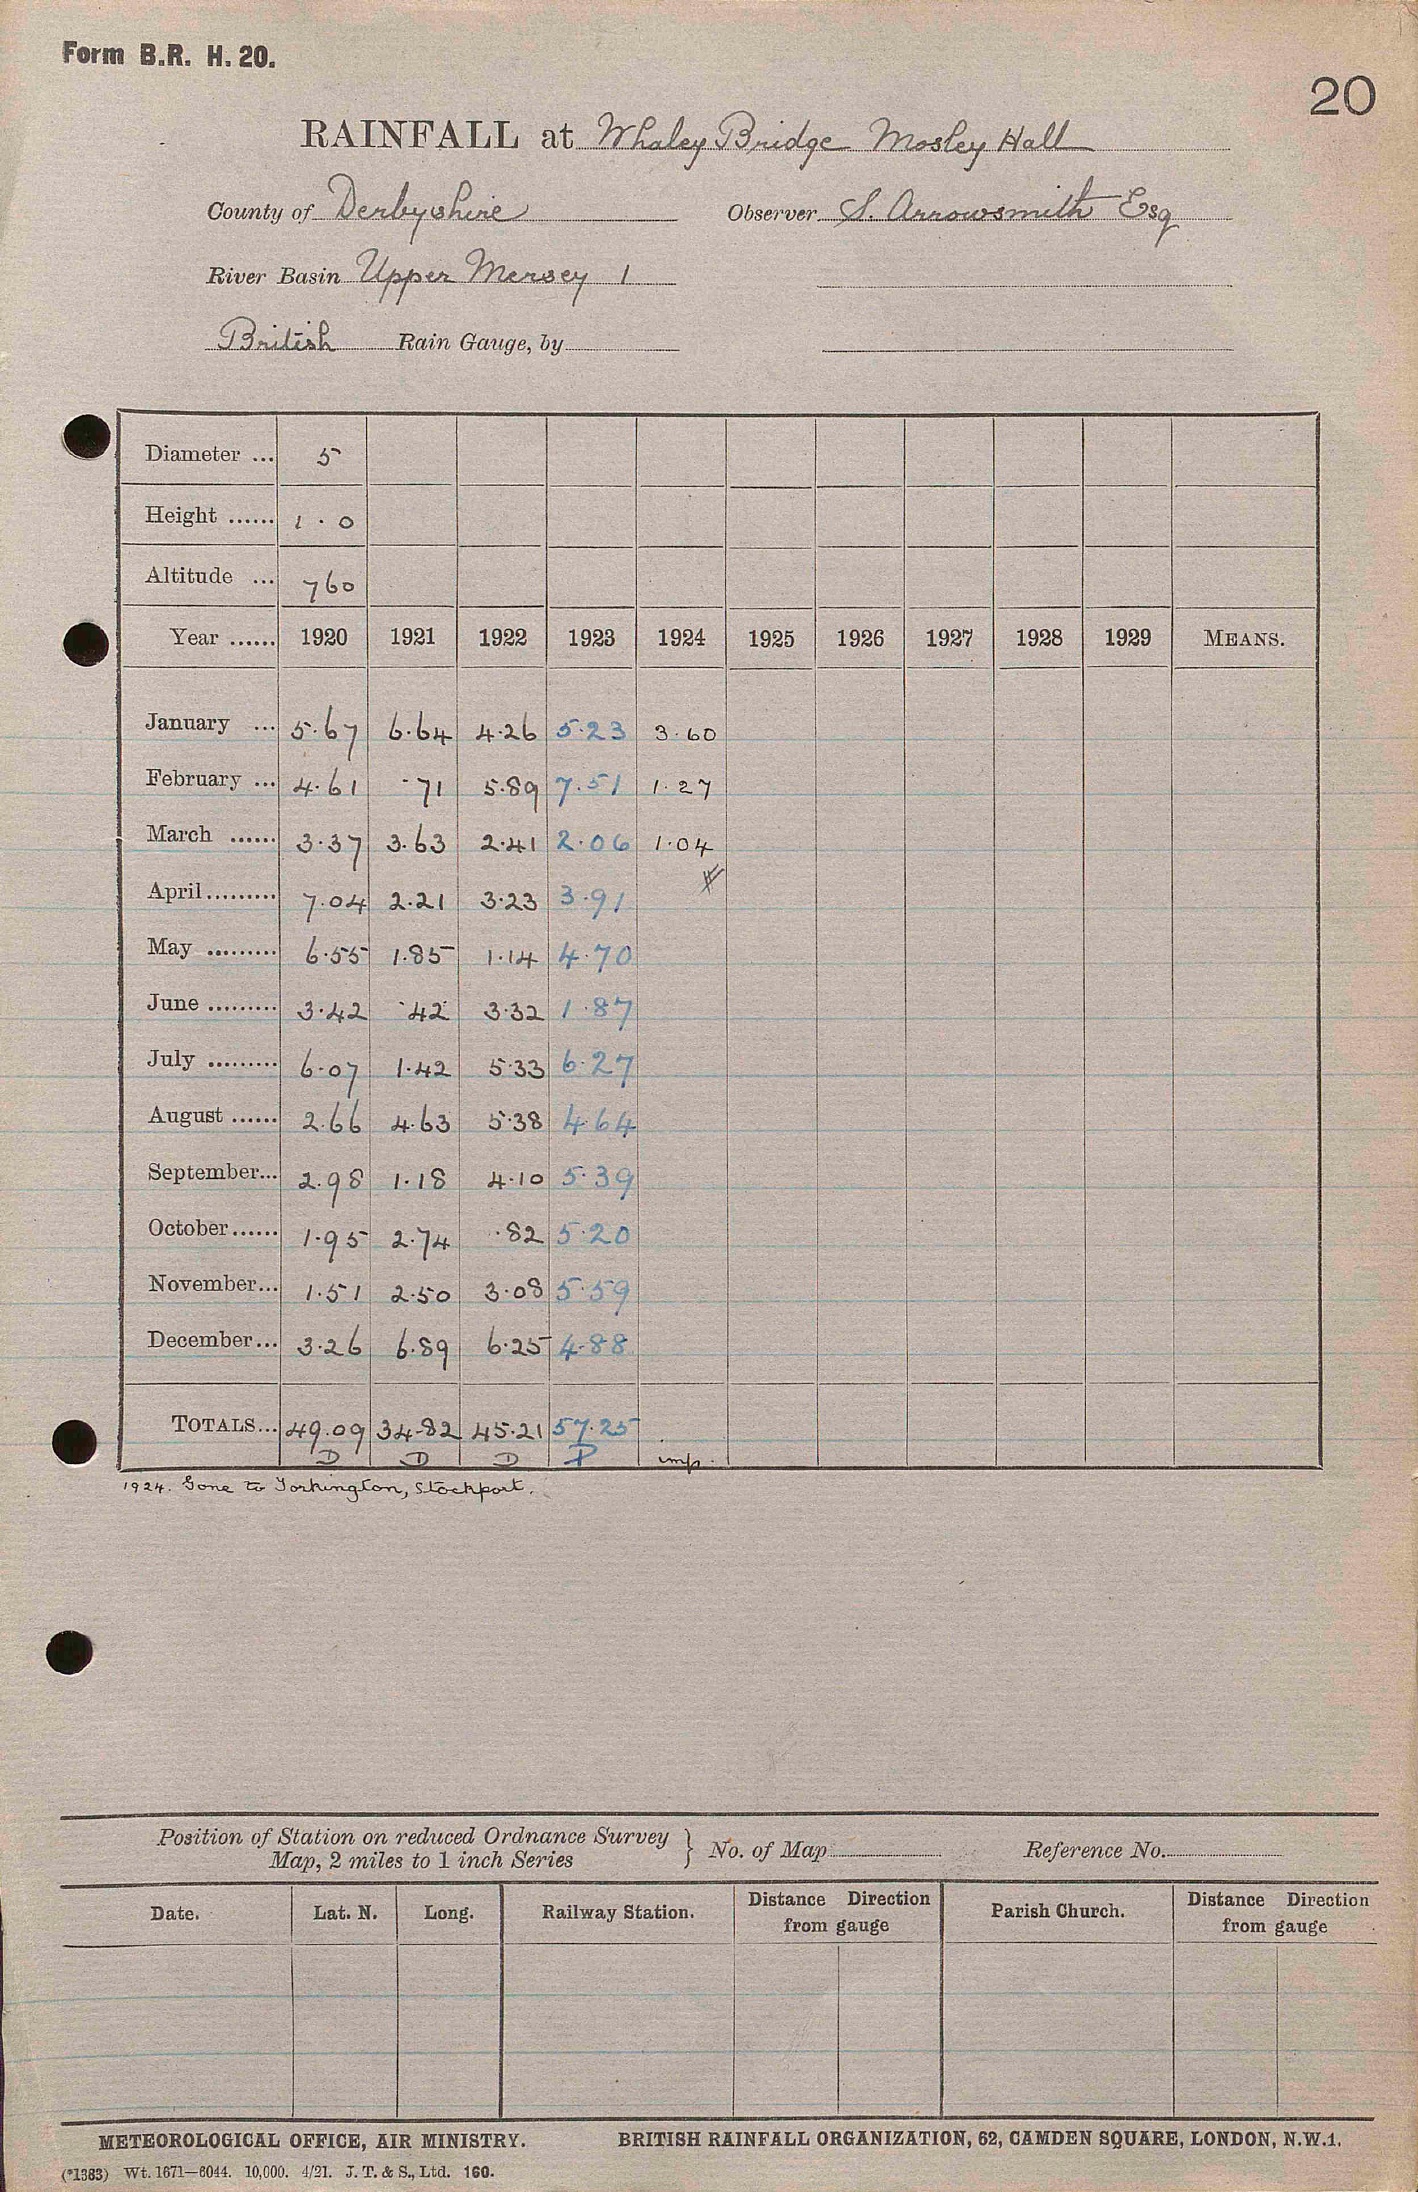 Form B.R. H. 20.
20
RAINFALL at Whaley Bridge Mosley Hall
County of Derbyshire Observer S. Arrowsmith Esq
River Basin Upper Mersey 1
British Rain Gauge, by
Diameter ... 5
Height ...... 1.0
Altitude ... 760
Year ...... 1920 1921 1922 1923 1924 1925 1926 1927 1928 1929 MEANS.
January ... 5.67 6.64 4.26 5.23 3.60
February ... 4.61 .71 5.89 7.51 1.27
March ...... 3.37 3.63 2.41 2.06 1.04
April......... 7.04 2.21 3.23 3.91
May ......... 6.55 1.85 1.14 4.70
June ......... 3.42 .42 3.32 1.87
July ......... 6.07 1.42 5.33 6.27
August ...... 2.66 4.63 5.38 4.64
September... 2.98 1.18 4.10 5.39
October...... 1.95 2.74 .82 5.20
November... 1.51 2.50 3.08 5.59
December... 3.26 6.89 6.25 4.88
TOTALS... 49.09 34.82 45.21 57.25
D D D P imp.
1924. Gone to Torkington, Stockport.
Position of Station on reduced Ordnance Survey
Map, 2 miles to 1 inch Series } No. of Map Reference No.
Date. Lat. N. Long. Railway Station. Distance Direction from gauge Parish Church. Distance Direction from gauge
METEOROLOGICAL OFFICE, AIR MINISTRY. BRITISH RAINFALL ORGANIZATION, 62, CAMDEN SQUARE, LONDON, N.W.1.
(*1383) Wt. 1671—6044. 10,000. 4/21. J. T. & S., Ltd. 160.